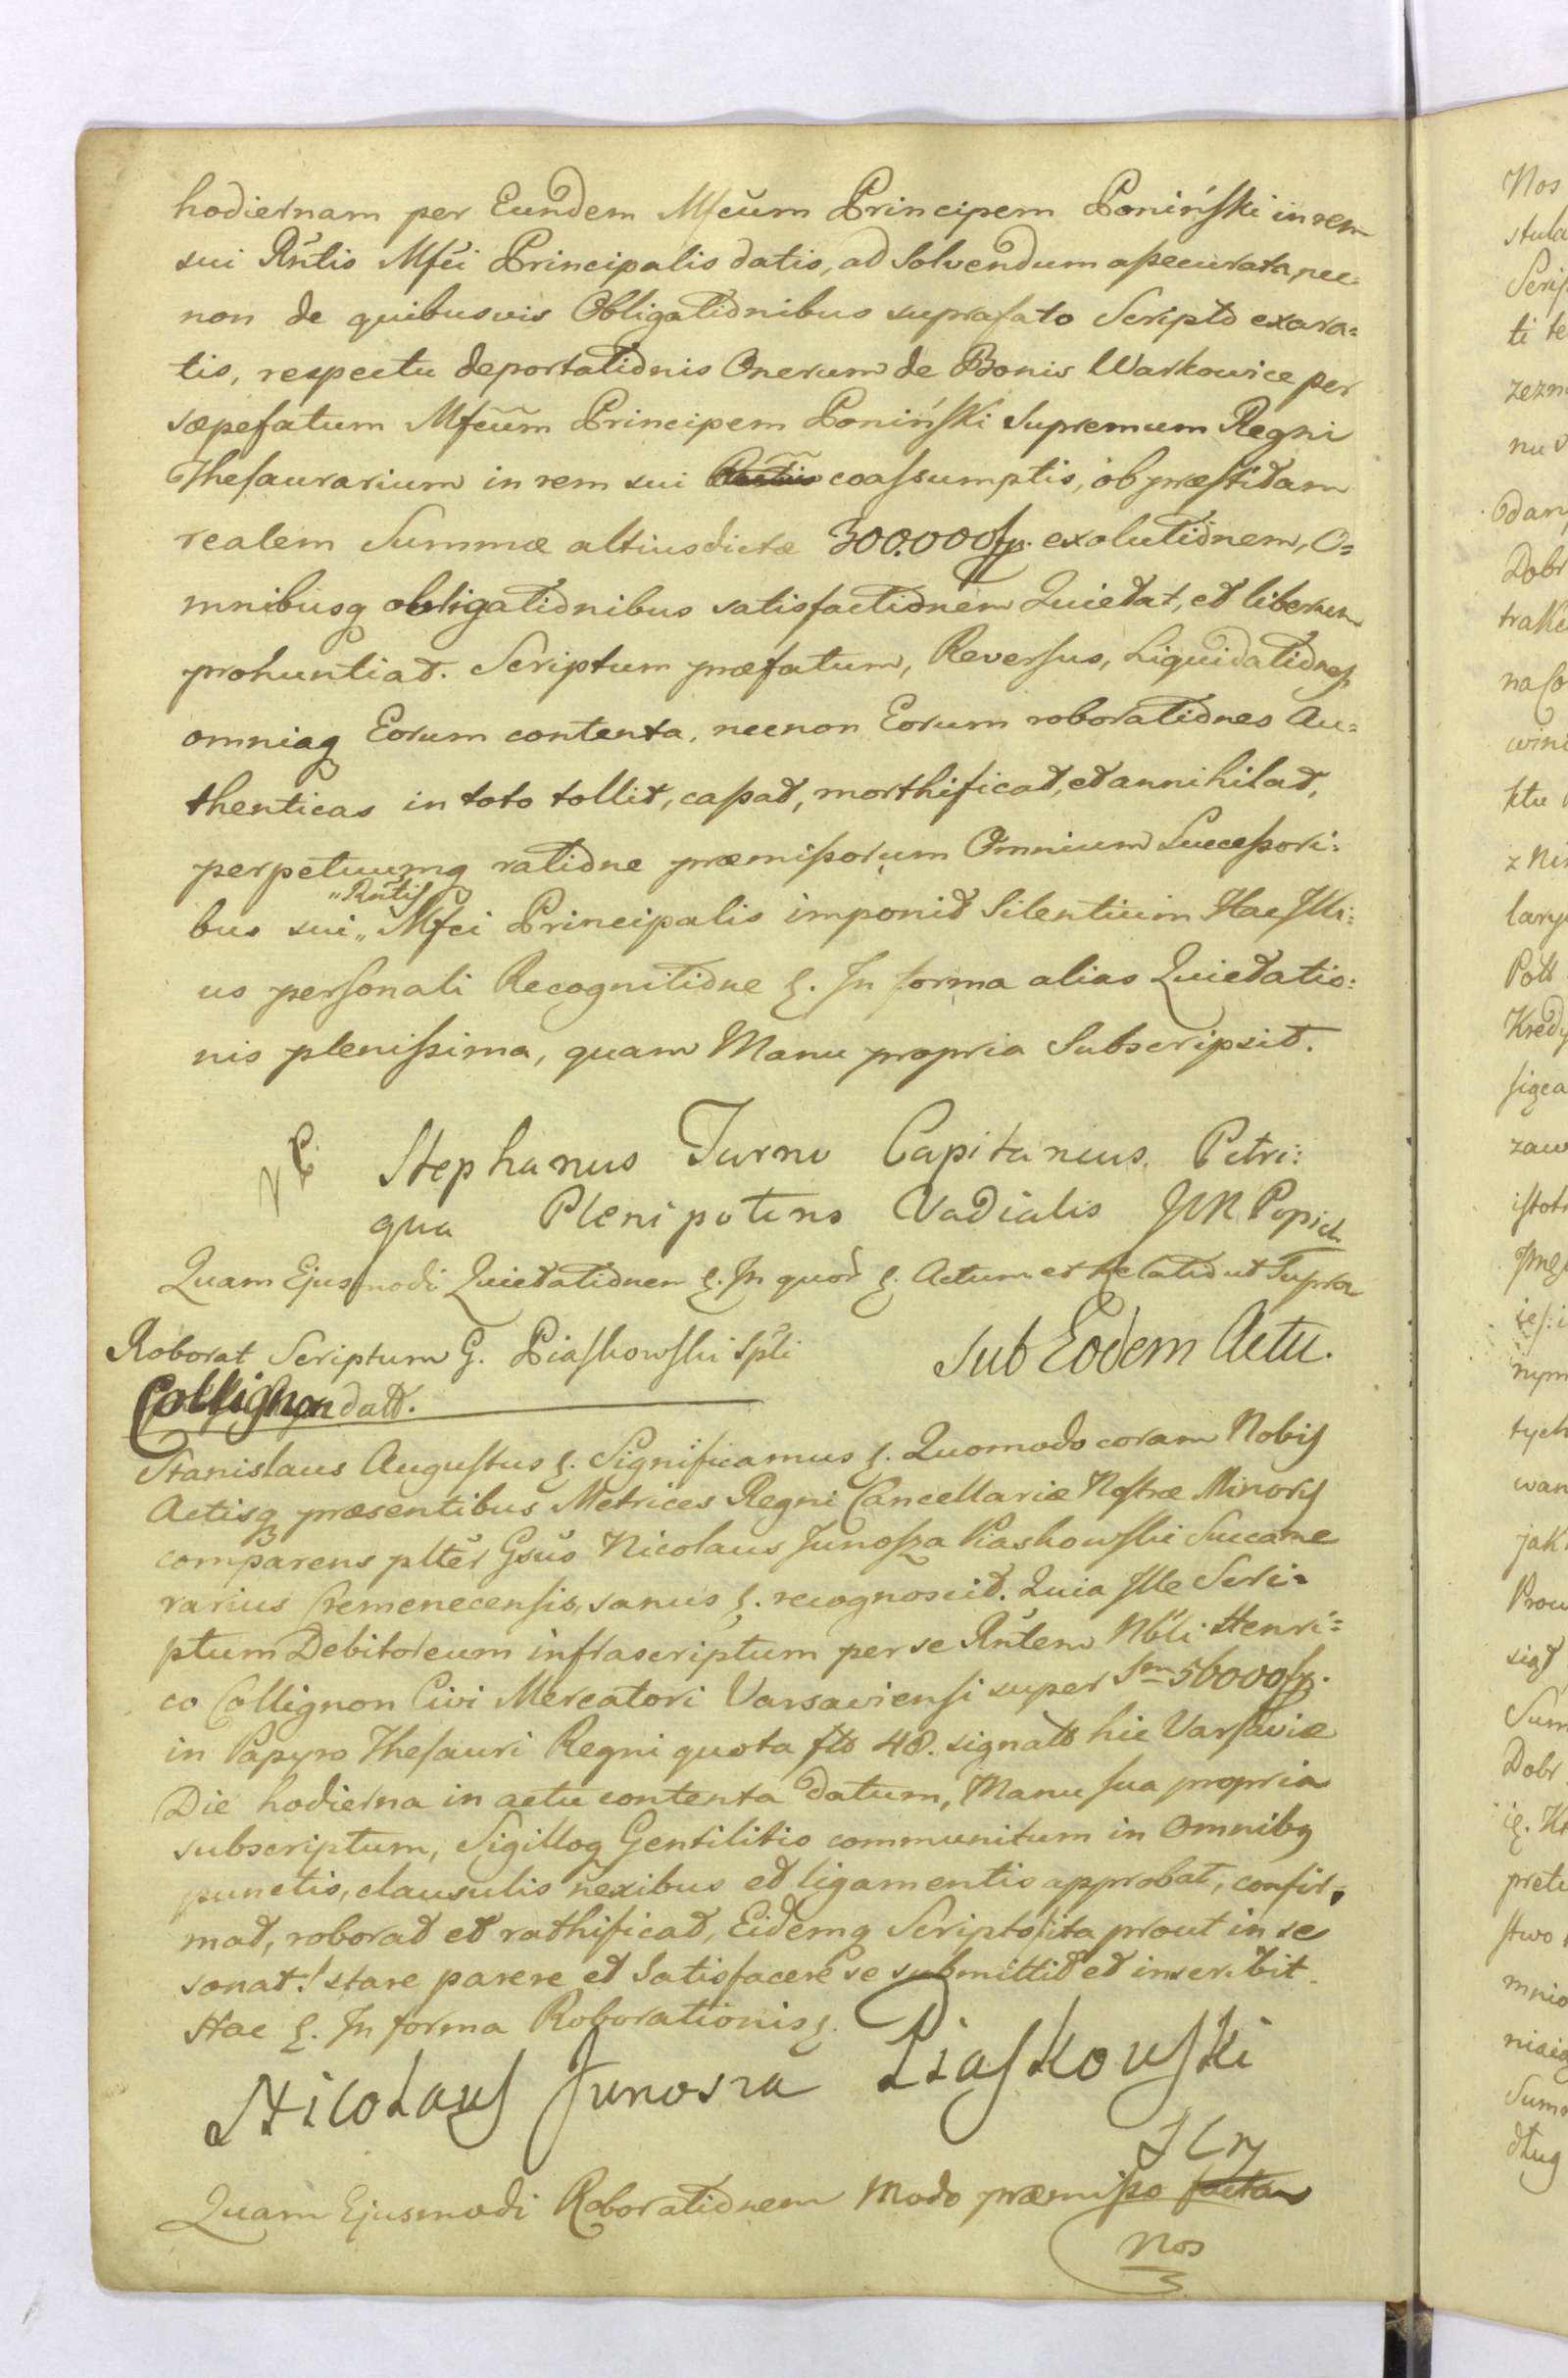 hodiernam per Eundem Mfcūm Principem Poniński in rem
sui Rn̄tis Mfći Principalis datis, ad Solvendum assecurata, nec:
non de quibusvis Obligationibus suprafato Scripto exara=
tis, respectu deportationis Onerum de Bonis Warkowice per
sæpefatum Mfcūm Principem Poniński Supremum Regni
Thesaurarium in rem sui coassumptis, ob præstitam
realem Summæ altiusdictæ 300.000 fp. exolutionem, O=
mnibusq obligationibus satisfactionem Quietat, et liberum
pronuntiat. Scriptum præfatum, Reversus, Liquidationes
omniaq Eorum contenta, necnon Eorum roborationes Au=
thenticas in toto tollit, cassat, morthificat, et annihilat,
perpetuumq ratione præmissorum Omnium Successori:
bus sui „Rn̄tis„ Mfci Principalis imponit Silentium Hac Illi:
us personali Recognitione ę. In forma alias Quietatio:
nis plenissima, quam Manu propria Subscripsit.
Stephanus Turno Capitaneus Petri:
qua Plenipotens Vadialis
Quam Ejusmodi Quietationem ę. In quor ę. Actum et Relatio ut Supra
Roborat Scriptum G. Piaskowski Spli
Sub Eodem Actu.
Collignon datt.
Stanislaus Augustus ę. Significamus ę. Quomodo coram Nobis
Actisq præsentibus Metrices Regni Cancellariæ Nostræ Minoris
comparens plter Gsūs Nicolaus Junosza Piaskowski Succame
rarius Cremenecensis, sanus ę. recognoscit. Quia Ille Scri=
ptum Debitoreum infrascriptum per se Rn̄tem Nbli Henri=
co Collignon Civi Mercatori Varsaviensi super Sm̄ 56000 fp.
in Papyro Thesauri Regni quota flo 48. signatto hic Varsaviæ
Die hodierna in actu contenta datum, Manu sua propria
subscriptum, Sigilloq Gentilitio communitum in Omnibq
punctis, clausulis nexibus et ligamentis approbat, confir,
mat, roborat et rathificat, Eidemq Scripto /ita prout in se
sonat:/ stare parere et Satisfacere se submittit et inscribit.
Hac ę. In forma Roborationis ę.
Nicolaus Junosza Piaskowski
Quam Ejusmodi Roborationem Modo præmisso factam
Nos